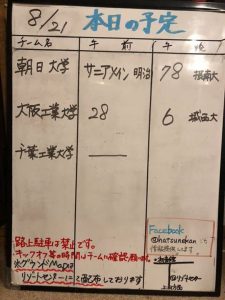 8/21 本日の予定
チーム名 午前 午後
朝日大学 サニアメイン 明治 78
大阪工業大学 28 6 城西大
千葉工業大学 —
路上駐車は禁止です。
キックオフ等の時間はチームに確認
※グランドMapは
リゾートセンターにて配布しております
Facebook
@hatsunekan